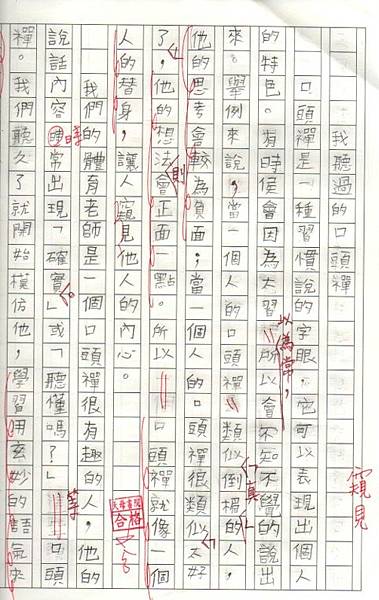 我聽過的口頭禪
口頭禪是一種習慣說的字眼，它可以表現出個人
的特色。有時侯會因為太習所以會不知不覺的說出
以為常，
窺見
來。舉例來說，當一個人的口頭禪類似倒楣的人，
真
他的思考會較為負面；當一個人的口頭禪很類似太好
了，他的想法會正面一點。所以口頭禪就像一個
則
人的替身，讓人窺見他人的內心。
合格
我們的體育老師是一個口頭禪很有趣的人，他的
說話內容常出現「確實」或「聽懂嗎？」口頭
時
等
禪。我們聽久了就開始模仿他，學習用玄妙的語氣來